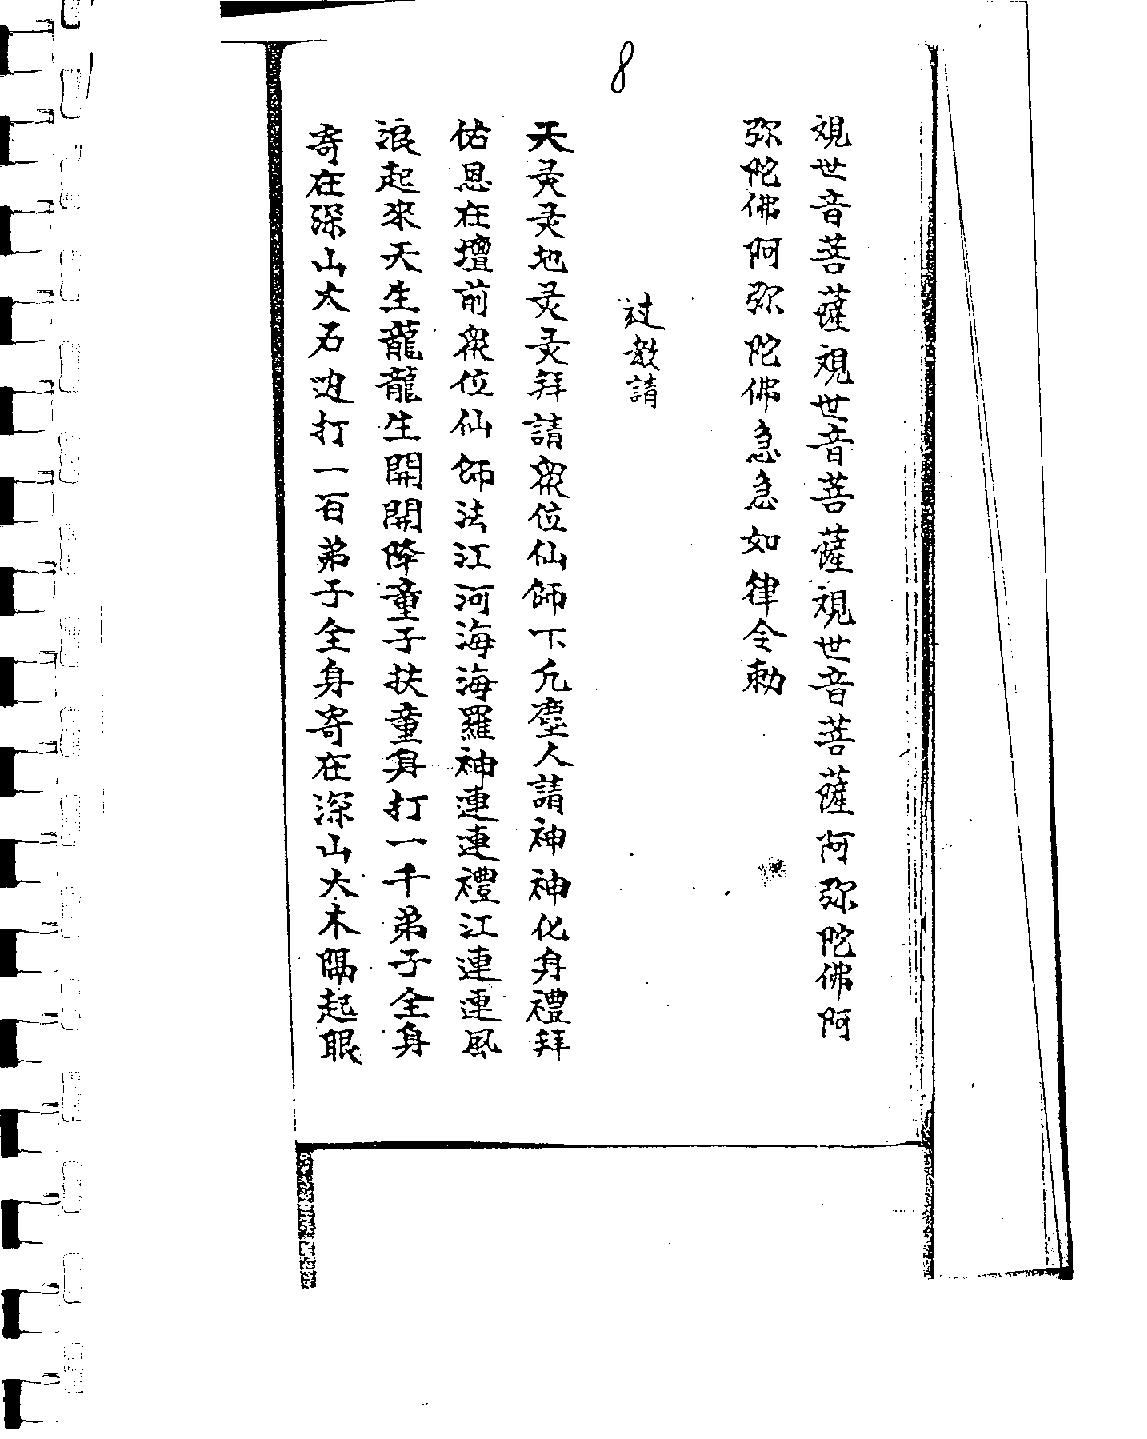 8
覌世音菩薩覌世音菩薩覌世音菩薩阿弥陀佛阿
弥陀佛阿弥陀佛急急如律令勅
过教請
天灵灵地灵灵拜請衆位仙師下凢塵人請神神化身禮拜
佑恩在壇前衆位仙師法江河海海羅神連連禮江連連風
浪起來天生龍龍生開開降童子扶童身打一千弟子全身
寄在深山大石边打一百弟子全身寄在深山大木隔起眼